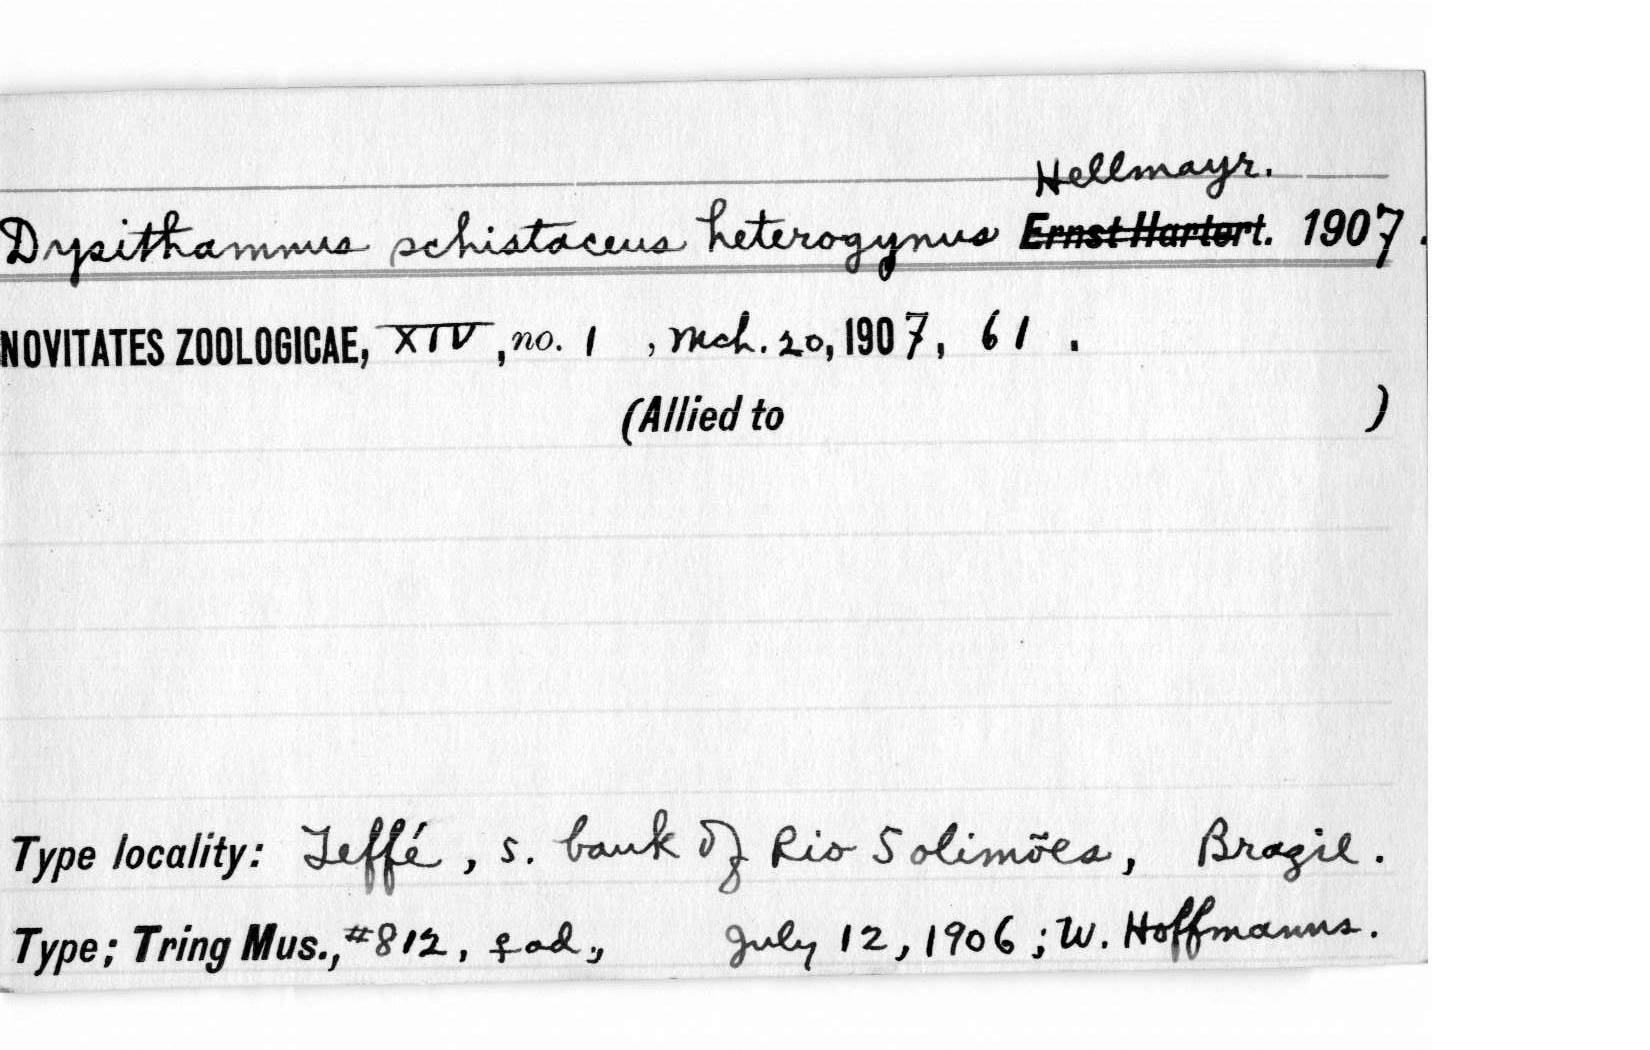 Hellmayr.
Dysithamnus schistaceus heterogynus Ernst Hartert. 1907.
NOVITATES ZOOLOGICAE, XIV, no. 1, Mch. 20, 1907, 61.
(Allied to )
Type locality: Teffé, s. bank of Rio Solimões, Brazil.
Type; Tring Mus., #812, ♀ ad., July 12, 1906; W. Hoffmanns.